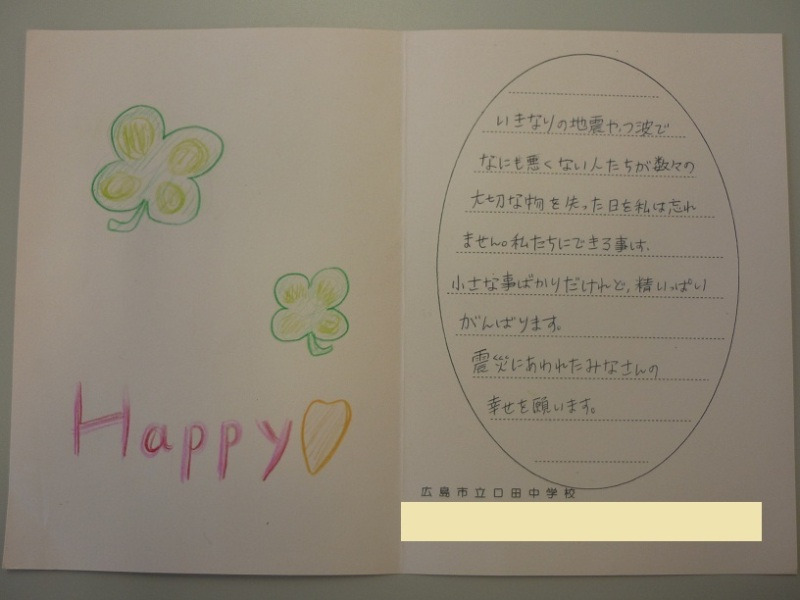 Happy
いきなりの地震やつ波で
なにも悪くない人たちが数々の
大切な物を失った日を私は忘れ
ません。私たちにできる事は、
小さな事ばかりだけれど、精いっぱい
がんばります。
震災にあわれたみなさんの
幸せを願います。
広島市立口田中学校